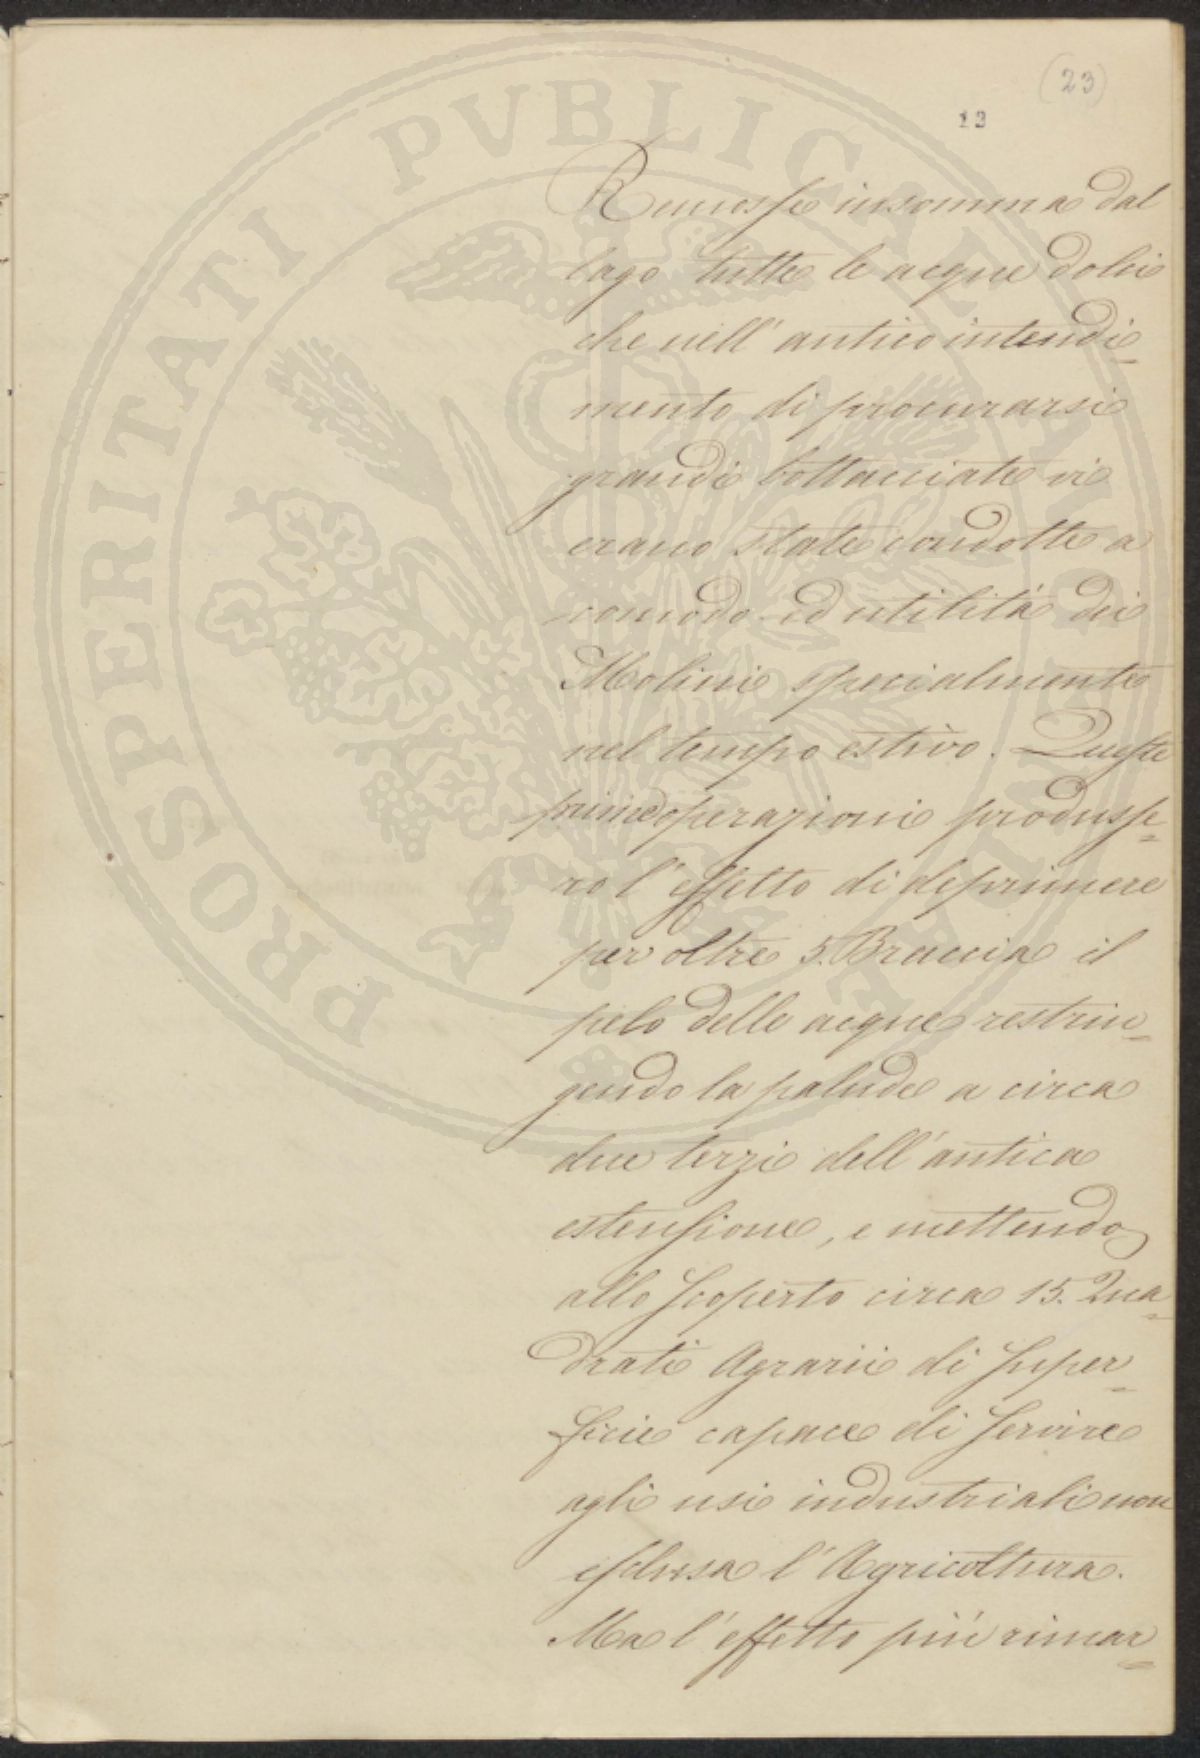 (23)
13
Remosse insomma dal
lago tutte le acque dolci
che nell' antico intendi=
mento di procurarsi
grandi bottacciate vi
erano state condotte a
comodo ed utilità dei
Molini specialmente
nel tempo estivo. Queste
prime operazioni produsse=
ro l'effetto di deprimere
per oltre 5. Braccia il
pelo delle acque restrin=
gendo la palude a circa
due terzi dell'antica
estensione, e mettendo
allo scoperto circa 15. Qua=
drati Agrarii di super=
ficie capace di servire
agli usi industriali non
esclusa l'Agricoltura.
Ma l'effetto più rimar=
PROSPERITATI PVBLICAE AVGENDAE